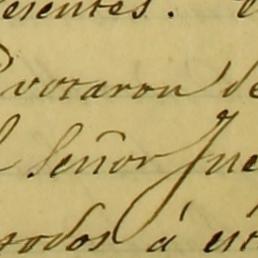 esentes.
votaron de
Señor Jue
todos á est